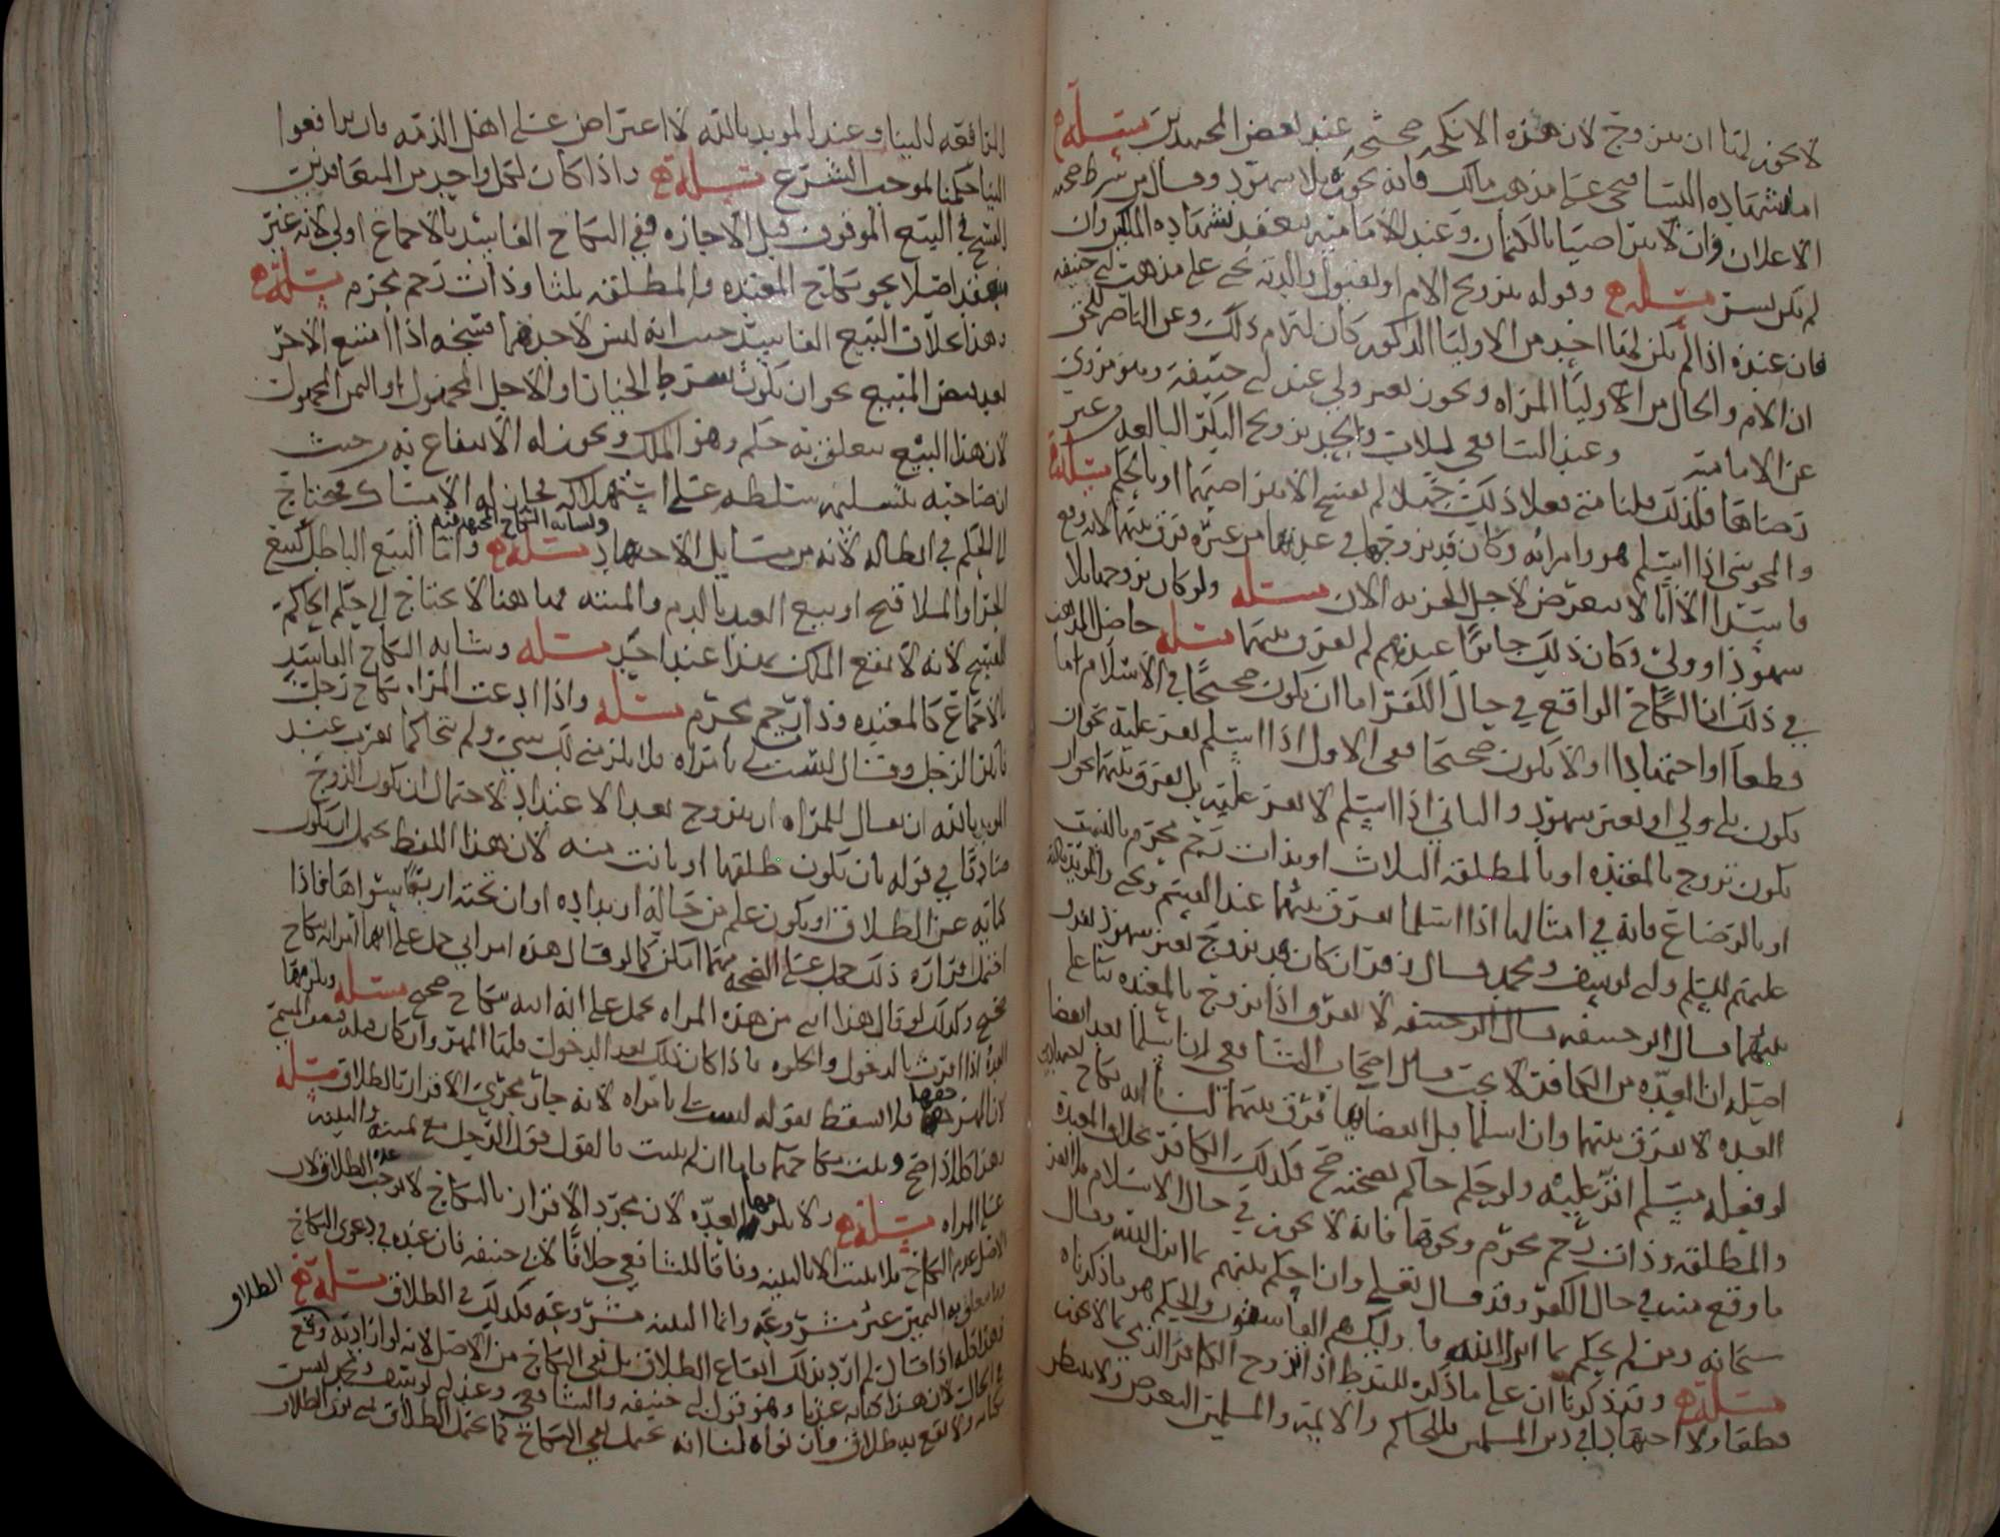 لا يجوز لمنا ان يتزوج لان هذه الانكحه صحيحه عند بعض المجتهدين مسئلة
اما شهاده النسا فهي على مذهب مالك فانه يجوزه بلا شهود وقال من شرط صحه
الاعلان وان لا يتراضيا بالكتمان وعند الاماميه ينعقد بشهاده الملكين وان
لم يكن بسر مسئلة وقوله بتزويج الام او لقبول والدته يحي على مذهب ابي حنيفه
فان عنده اذا لم يكن لها احد من الاوليا الذكور كان للام ذلك وعن الناصر للحق
ان الام والخال من الاوليا المراه ويجوز بغير ولي عند ابي حنيفه وهو مروي
عن الاماميه وعند الشافعي للاب والجد تزويج البكر البالغه وغير
رضاها فلذلك قلنا متى فعلا ذلك جهلا لم يفسخ الا بتراضيهما او بالحكم مسئلة
والمجوسي اذا اسلم هو وامراته وكان قد تزوجها في عدتها من غيره فرق بينهما لانه وقع
فاسدا الا انا لا نتعرض لاجل الجزيه الان مسئله ولو كان تزوجها بلا
شهود او ولي وكان ذلك جائزا عندهم لم يفرق بينهما مسئله حاصل المذهب
في ذلك ان النكاح الواقع في حال الكفر اما ان يكون صحيحا في الاسلام اما
قطعا او اجتهادا او لا يكون صحيحا ففي الاول اذا اسلم يقر عليه نحو ان
يكون بلا ولي او بغير شهود والثاني اذا اسلم لا يقر عليه بل يفرق بينهما نحو ان
يكون تزوج بالمعتده او بالمطلقه الثلاث او بذات رحم محرم بالنسب
او بالرضاع فانه في امثالها اذا اسلما يفرق بينهما عند القسم ويحي والمويد بالله
عليهم السلم وابي يوسف ومحمد وقال زفر ان كان قد تزوج بغير شهود يفرق
بينهما وقال ابو حنيفه لا يفرق اذا تزوج بالمعتده بنا على
اصله ان العده من الكافر لا تجب وقال اصحاب الشافعي ان اسلما بعد انقضا
العده لا يفرق بينهما وان اسلما قبل انقضايها فرق بينهما لنا انه نكاح
لو فعله مسلم انكر عليه ولو حكم حاكم بصحته صح فكذلك الكافر بخلاف المعتده
والمطلقه وذات رحم محرم ونحوها فانه لا يجوز في حال الاسلام فلا يقر
ما وقع منه في حال الكفر وقد قال تعالى وان احكم بينهم بما انزل الله وقال
سبحانه ومن لم يحكم بما انزل الله فاوليك هم الفاسقون والحكم هو ما ذكرناه
مسئلة وقد ذكرنا ان على ما ذكره للمذهب اذا تزوج الكافر الذي بما لا يجوز
قطعا ولا اجتهادا في دين المسلمين فللحاكم والايمه والمسلمين التعرض ولا ينتظر
المرافعه الينا وعند المويد بالله لا اعتراض على اهل الذمه فان ترافعوا
الينا حكمنا بموجب الشرع مسئلة واذا كان لكل واحد من المتعاقدين
الفسخ في البيع الموقوف قبل الاجازه ففي النكاح الفاسد بالاجماع اولى لانه غير
منعقد اصلا نحو نكاح المعتده والمطلقه ثلثا وذات رحم محرم مسئلة
وهذا بخلاف البيع الفاسد حيث انه ليس لاحدهما فسخه اذا امتنع الاخر
بعد قبض المبيع نحو ان يكون بشرط الخيار او الاجل المجهول او الثمن المجهول
لان هذا البيع يتعلق به حكم وهو الملك ويجوز له الانتفاع به حيث
ان صاحبه بتسليمه سلطه على استهلاكه فجاز له الامساك فيحتاج
الى الحكم في ابطاله لانه من مسايل الاجتهاد مسئلة واما البيع الباطل كبيع
وبشابه النكاح المجتهد فيه
الحر او الملاقيح او بيع العبد بالدم والميته فها هنا لا يحتاج الى حكم الحاكم
للفسخ لانه لا يقع الملك بهذا عند احد مسئله وبشابه النكاح الفاسد
بالاجماع كالمعتده وذا رحم محرم مسئله واذا ادعت المراه نكاح رجل
فانكر الرجل وقال ليست لي بامراه فلا يلزمني لك شيء ولم يتحاكما يقرب عند
المويد بالله ان يقال للمراه ان تتزوج بعد الاعتداد لاحتمال ان يكون الزوج
صادقا في قوله بان يكون طلقها او بانت منه لان هذا اللفظ يحتمل ان يكون
كنايه عن الطلاق او يكون علم من حاله ارتداده او ان تحته اربعا سواها فاذا
احتمل قراره ذلك حمل على الصحه مهما امكن كما لو قال هذه امراتي حمل على انها امراته بنكاح
صحيح وكذلك لو قال هذا ابني من هذه المراه يحمل على انه ابنه بنكاح صحيح مسئله ويلزمها
العده اذا اقرت بالدخول والخلوه فاذا كان ذلك بعد الدخول فلها المهر وان كان قبله فنصف المسمى
لان المهر حقها فلا يسقط بقوله ليست لي بامراه لانه جار مجرى الاقرار بالطلاق مسئله
وهذا كله اذا صح وثبت نكاحهما فاما ان لم يثبت فالقول قول الرجل مع يمينه والبينه
على المراه مسئلة ولا يلزمها العده لان مجرد الاقرار بالنكاح لا يوجب عده الطلاق لان
الاصل عدم النكاح فلا يثبت الا بالبينه وفاقا للشافعي خلافا لابي حنيفه فان عنده في دعوى النكاح
وما يتعلق به اليمين غير مشروعه وانما البينه مشروعه فكذلك في الطلاق مسئلة الطلاق
وهذا كله اذا قال لم ارد بذلك ايقاع الطلاق بل نفي النكاح من الاصل لانه لو اراد به وقع
في الحال لان هذا كنايه عندنا وهو قول ابي حنيفه والشافعي وعند ابي يوسف ومحمد ليست
كنايه ولا يقع به طلاق وان نواه لنا انه يحتمل نفي النكاح كما يحتمل الطلاق فمتى نوى الطلاق